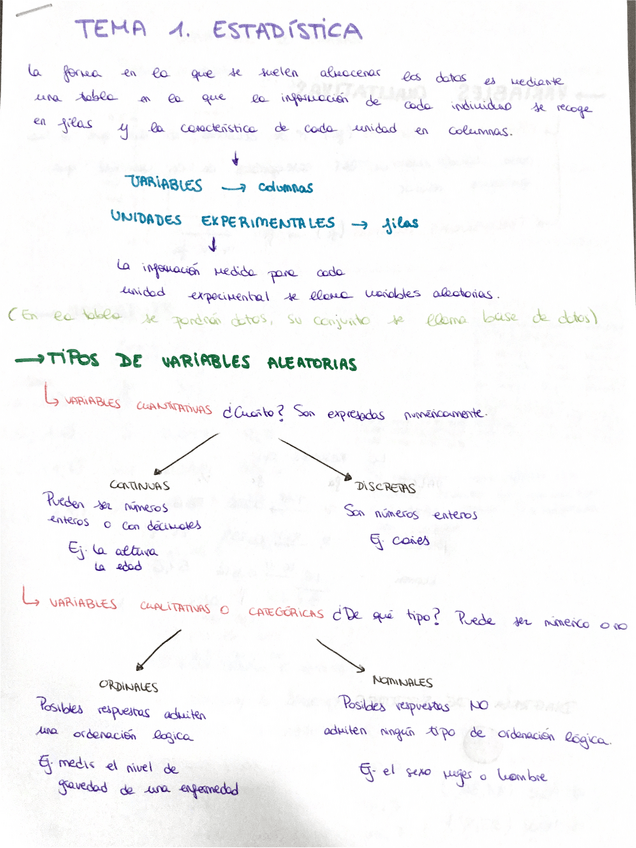 TEMA 1. ESTADÍSTICA
La forma en la que se suelen almacenar los datos es mediante
una tabla en la que la información de cada individuo se recoge
en filas y la característica de cada unidad en columnas.
VARIABLES → columnas
UNIDADES EXPERIMENTALES → filas
La información medida para cada
unidad experimental se llama variables aleatorias.
(En la tabla se pondrán datos, su conjunto se llama base de datos)
→ TIPOS DE VARIABLES ALEATORIAS
↳ VARIABLES CUANTITATIVAS ¿Cuánto? Son expresadas numéricamente.
CONTINUAS DISCRETAS
Pueden ser números Son números enteros
enteros o con décimales Ej. caries
Ej. La altura
La edad
↳ VARIABLES CUALITATIVAS O CATEGÓRICAS ¿De qué tipo? Puede ser númerico o no
ORDINALES NOMINALES
Posibles respuestas admiten Posibles respuestas NO
una ordenación logica admiten ningún tipo de ordenación lógica.
Ej. medir el nivel de Ej. el sexo mujer o hombre
gravedad de una enfermedad